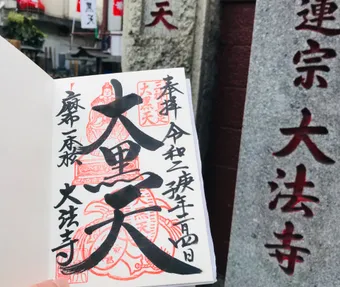 奉拝 令和二庚子年二月四日
大黒天
大黒天
麻布一本松
大法寺
天
蓮宗
大法寺